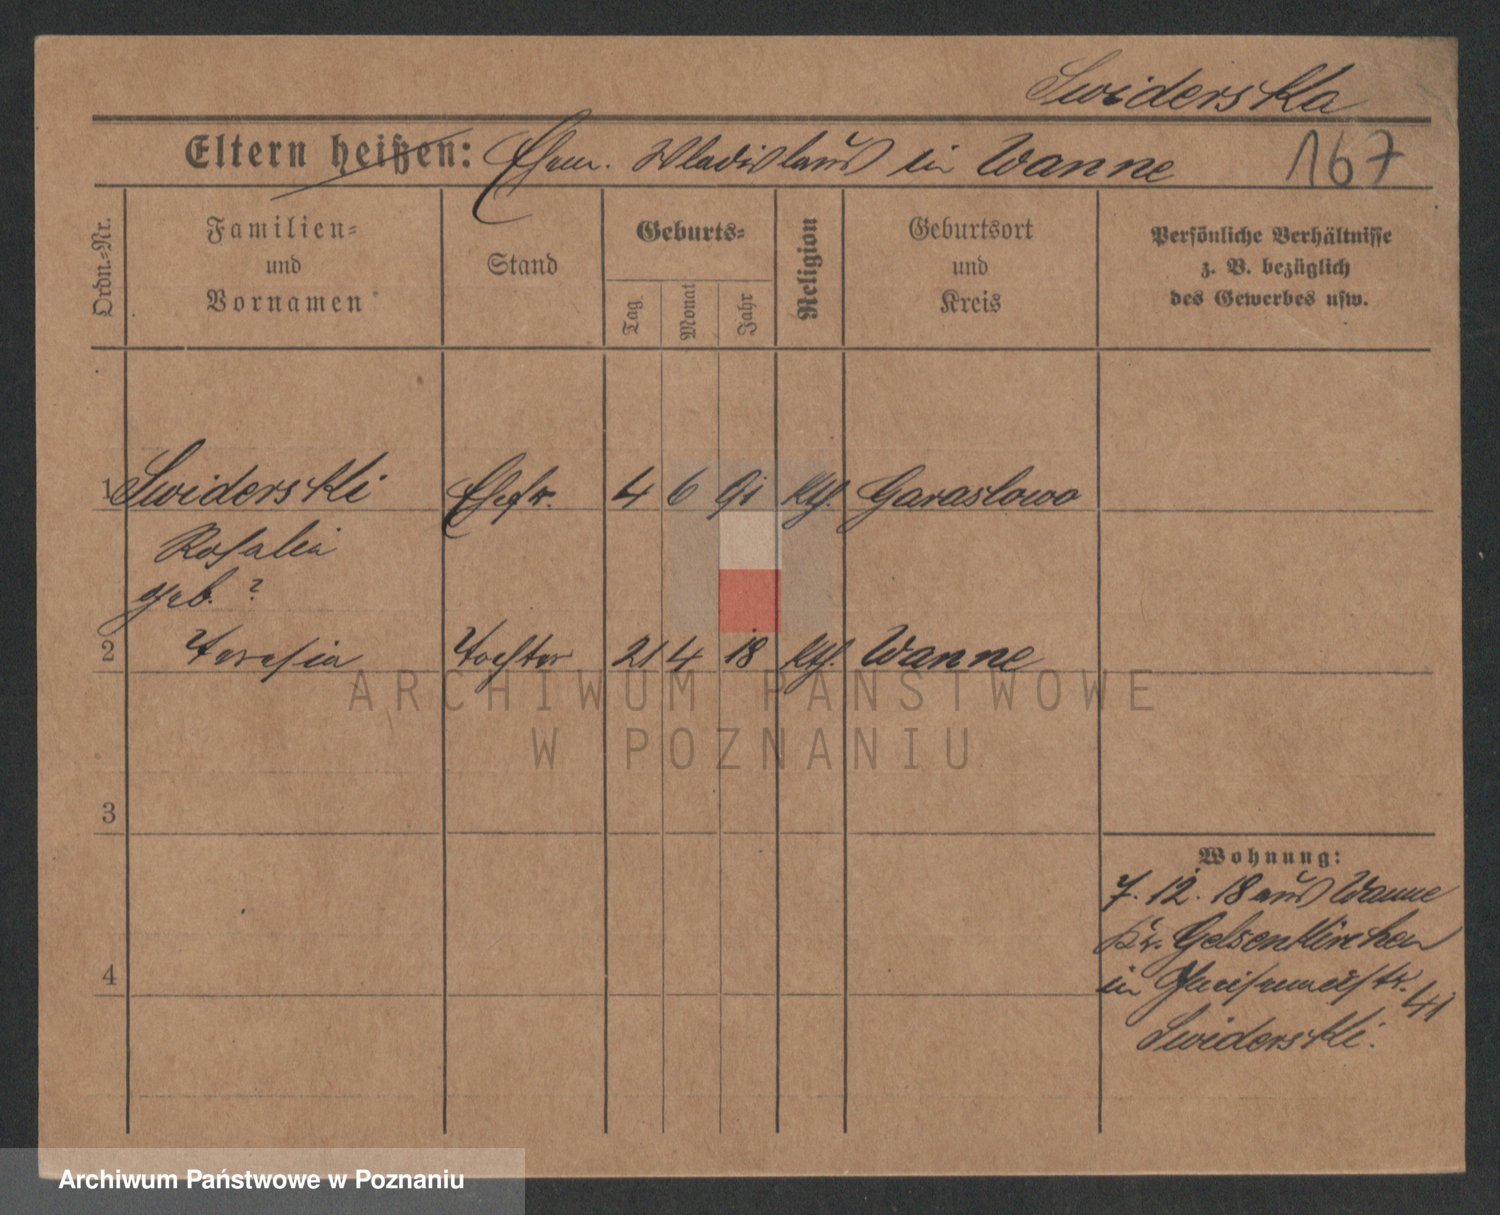 Swiderska
Eltern heißen: Ehem. Wladislaus in Wanne
167
Ordn.-Nr.
Familien-
und
Vornamen
Stand
Geburts-
Tag
Monat
Jahr
Religion
Geburtsort
und
Kreis
Persönliche Verhältnisse
z. B. bezüglich
des Gewerbes usw.
1 Swiderski Ehefr. 4 6 91 kth. Garaslowo
Rosalia
geb. ?
2 Teresia Tochter 21 4 18 kth. Wanne
ARCHIWUM PAŃSTWOWE
W POZNANIU
3
Wohnung:
7. 12. 18 aus Wanne
Kr. Gelsenkirchen
4
in 41
Swiderski.
Archiwum Państwowe w Poznaniu